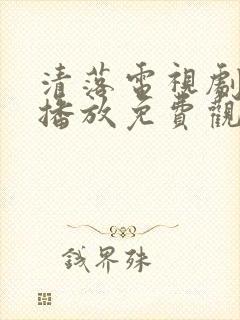 清落電視劇
播放免費觀
錢界殊